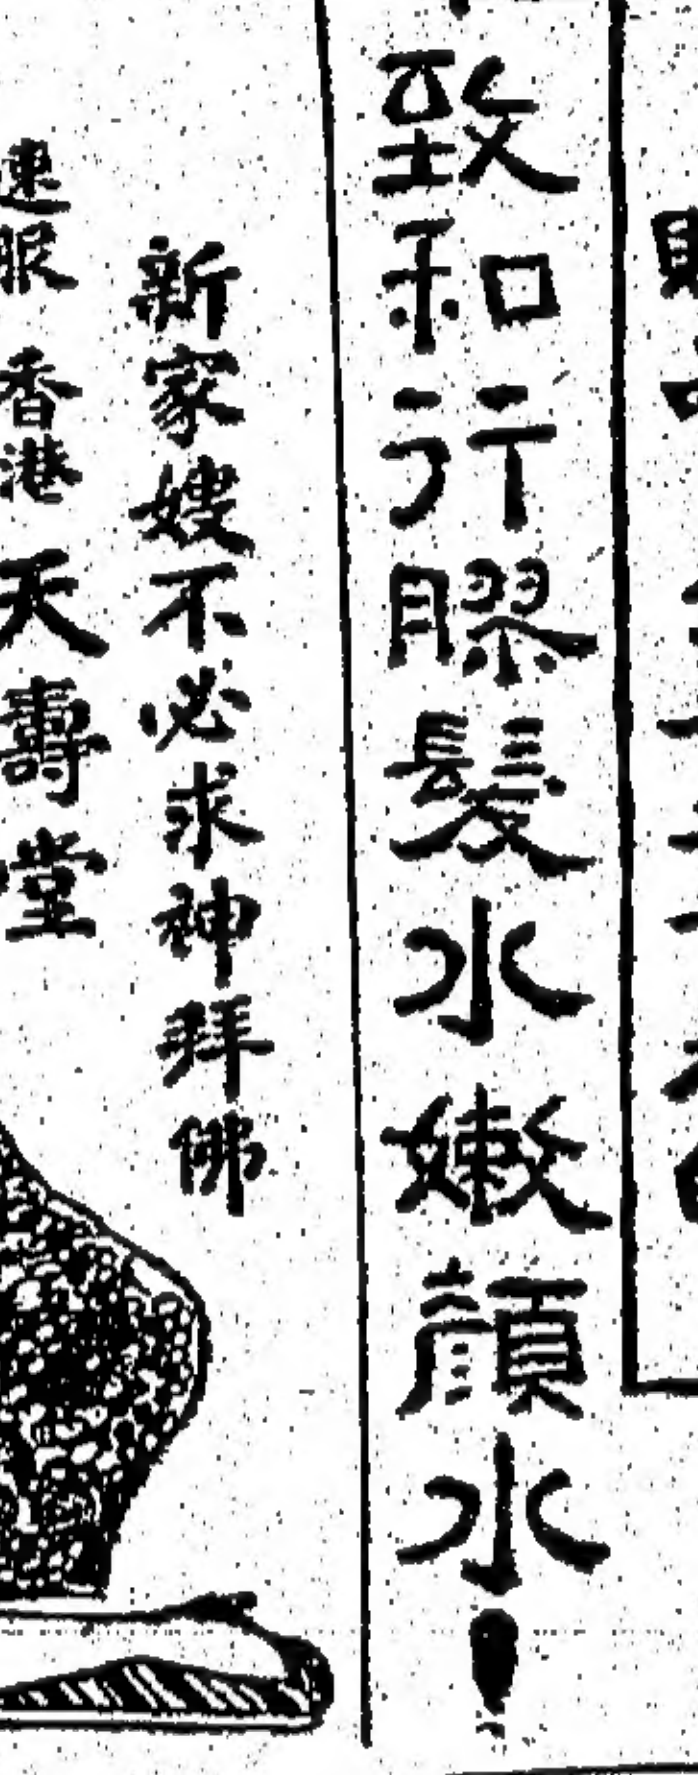 致和行膠髮水嫩顏水
新家嫂不必求神拜佛
速服 香港天壽堂